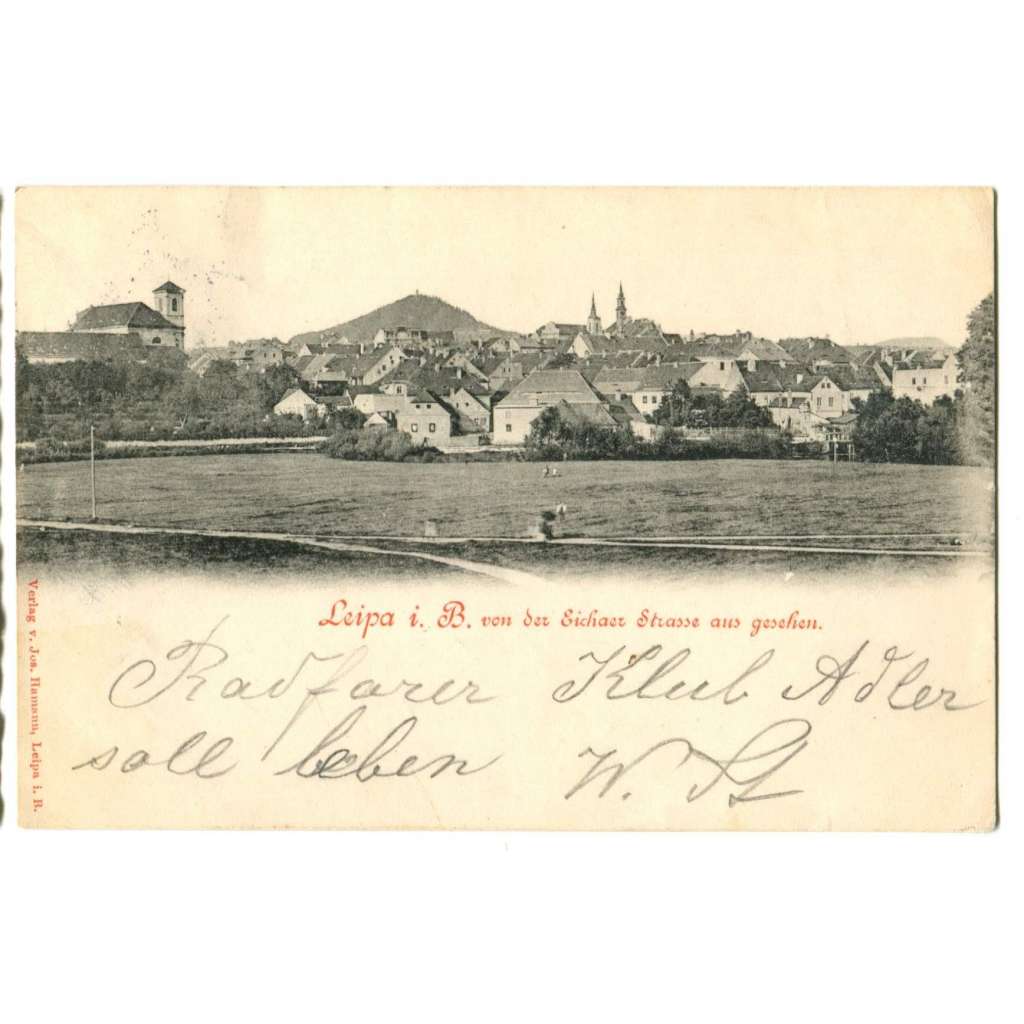 Leipa i. B. von der Eichaer Strasse aus gesehen.
Verlag v. Jos. Hamann, Leipa i. B.
Radfarer Klub Adler
soll leben W.